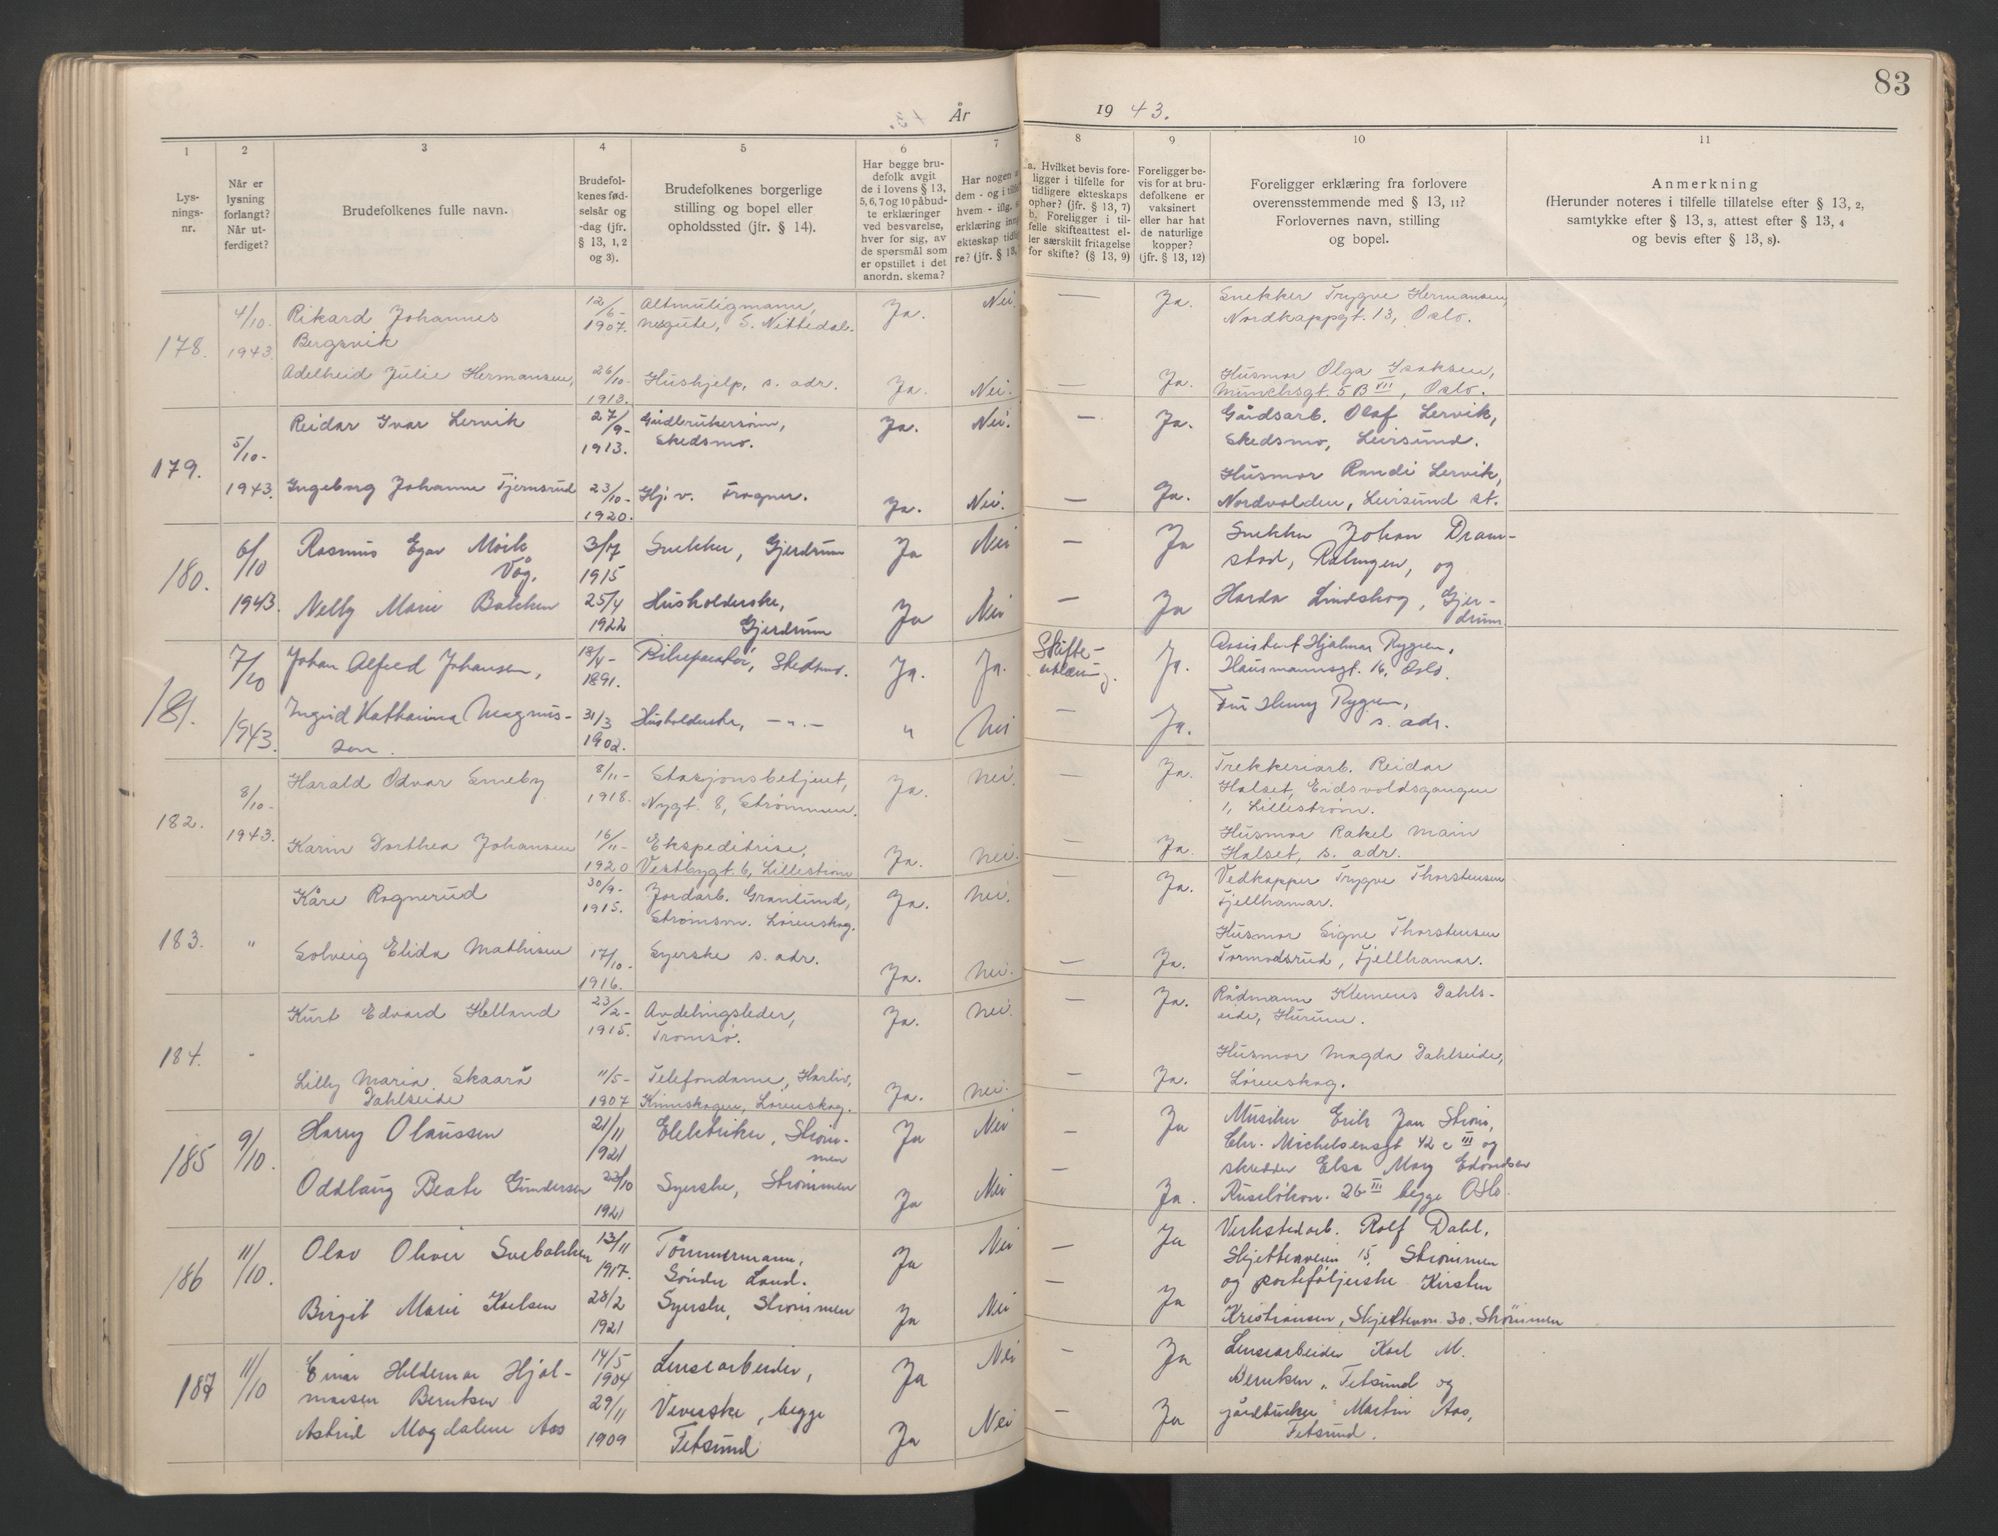 83
År
19 43.
1
2
3
4
5
6
7
8
9
10
11
Lys-
nings-
nr.
Når er
lysning
forlangt?
Når ut-
ferdiget?
Brudefolkenes fulle navn.
Brudefol-
kenes fød-
selsår og
-dag (jfr.
§ 13, 1, 2
og 3).
Brudefolkenes borgerlige
stilling og bopel eller
opholdssted (jfr. § 14).
Har begge bru-
defolk avgit
de i lovens § 13,
5, 6, 7 og 10 påbud-
te erklæringer
ved besvarelse,
hver for sig, av
de spørsmål som
er opstillet i det
anordn. skema?
Har nogen a
dem - og i tilf
hvem - iflg. s
erklæring inng
ekteskap tidli
re? (jfr. § 13,
a. Hvilket bevis fore-
ligger i tilfelle for
tidligere ekteskaps
ophør? (jfr. § 13, 7)
b. Foreligger i til-
felle skifteattest el-
ler særskilt fritagelse
for skifte? (§ 13, 9)
Foreligger be-
vis for at bru-
defolkene er
vaksinert
eller har hatt
de naturlige
kopper?
(jfr. § 13, 12)
Foreligger erklæring fra forlovere
overensstemmende med § 13, 11?
Forlovernes navn, stilling
og bopel.
Anmerkning
(Herunder noteres i tilfelle tillatelse efter § 13, 2,
samtykke efter § 13, 3, attest efter § 13, 4
og bevis efter § 13, 8).
178.
4/10-
1943.
Rikard Johannes
Bergsvik
12/6-
1907.
Altmuligmann,
S. Nittedal.
Ja.
Nei
—
Ja.
Snekker Trygve Hermansen,
Nordkappgt. 13, Oslo.
Adelheid Julie Hermansen,
26/10-
1913.
Hushjelp, s. adr.
Ja.
Nei.
—
Ja.
Husmor Olga Isaksen,
Munchsgt. 5 B VII, Oslo.
179.
5/10-
1943.
Reidar Ivar Lervik
27/9-
1913.
Gårdbrukersønn,
Skedsmo.
Ja.
Nei.
—
Ja.
Gårdsarb. Olaf Lervik,
Skedsmo, Leirsund.
Ingeborg Johanne Tjernsrud
23/10-
1920.
Hj. v. Frogner.
Ja.
Nei.
—
Ja.
Husmor Randi Lervik,
Nordvolden, Leirsund st.
180.
6/10
1943.
Rasmus Egar Mork
Våg.
3/7
1915
Snekker, Gjerdrum
Ja
Nei
—
Ja
Snekker Johan Dram-
stad, Rælingen, og
Nelly Marie Bakken
25/4
1922
Husholderske,
Gjerdrum
Ja
Nei
—
Ja
Harda Lindskog, Gjer-
drum
181.
7/10
1943.
Johan Alfred Johansen,
18/4-
1891.
Bilreparatør, Skedsmo.
Ja.
Ja.
Skifte-
erklæring.
Ja.
Assistent Hjalmar Rygren,
Hausmannsgt. 16, Oslo.
Ingrid Katharina Magnus-
sen.
31/3
1902.
Husholderske, —„—
"
Nei
—
Ja.
Fru Henny Rygren,
s. adr.
182.
8/10-
1943.
Harald Odvar Smeby
8/11-
1918.
Stasjonsbetjent,
Nygt. 8, Strømmen.
Ja.
Nei.
—
Ja.
Trekkeriarb. Reidar
Halset, Eidsvoldsgangen
1, Lillestrøm.
Karin Dorthea Johansen
16/11-
1920
Ekspeditrise,
Vestbygt. 6, Lillestrøm
Ja.
Nei.
—
Ja.
Husmor Rakel Main
Halset, s. adr.
183.
"
Kåre Rognerud
30/9-
1915.
Jordarb. Granlund,
Strømsvn. Lørenskog.
Ja.
Nei.
—
Ja.
Vedkapper Trygve Thorstensen
Fjellhamar.
Solveig Elida Mathisen
17/10-
1916.
Syerske s. adr.
Ja.
Nei.
—
Ja.
Husmor Signe Thorstensen
Tormodsrud, Fjellhamar.
184.
"
Kurt Edvard Helland
23/2-
1915.
Avdelingsleder,
Tromsø.
Ja.
Nei.
—
Ja.
Rådmann Klemens Dahls-
eide, Hurum.
Lilly Maria Skaarå
Dahlseide
11/5-
1907
Telefondame, Harliv,
Kinnskogen, Lørenskog.
Ja.
Nei.
—
Ja.
Husmor Magda Dahlseide,
Lørenskog.
185
9/10.
Harry Olaussen
21/11
1921
Elektriker, Strøm-
men
Ja
Nei
—
Ja
Musiker Erik Jan Strøm,
Chr. Michelsensgt 42 c III og
Oddlaug Beate Gundersen
23/10
1921
Syerske, Strømmen
Ja
Nei
—
Ja.
skredder Elsa May Edvardsen
Ruseløkvn. 26 III begge Oslo.
186
11/10.
Olav Oliver Svebakken
13/11
1917.
Tømmermann,
Søndre Land.
Ja
Nei
—
Ja
Verkstedarb. Rolf Dahl,
Skjettenveien 15, Strømmen
Birgit Marie Karlsen
28/2
1921
Syerske, Strømmen
Ja
Nei
—
Ja
og porteføljerske Kirsten
Kristiansen, Skjettenvn. 30. Strømmen
187
11/10
Einar Heldemar Hjal-
marsen Berntsen
14/5
1904
Lensearbeider,
Ja
Nei
Ja
Lensearbeider Karl M.
Berntsen, Fetsund og
Astrid Magdalene Aas
29/11
1909
Veverske, begge
Fetsund
Ja
Nei
—
Ja
gårdbruker Martin Aas,
Fetsund.